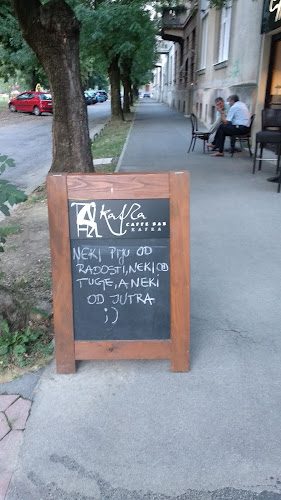 Kafka
CAFFE BAR
KAFKA
NEKI PIJU OD
RADOSTI, NEKI OD
TUGE, A NEKI
OD JUTRA
;)